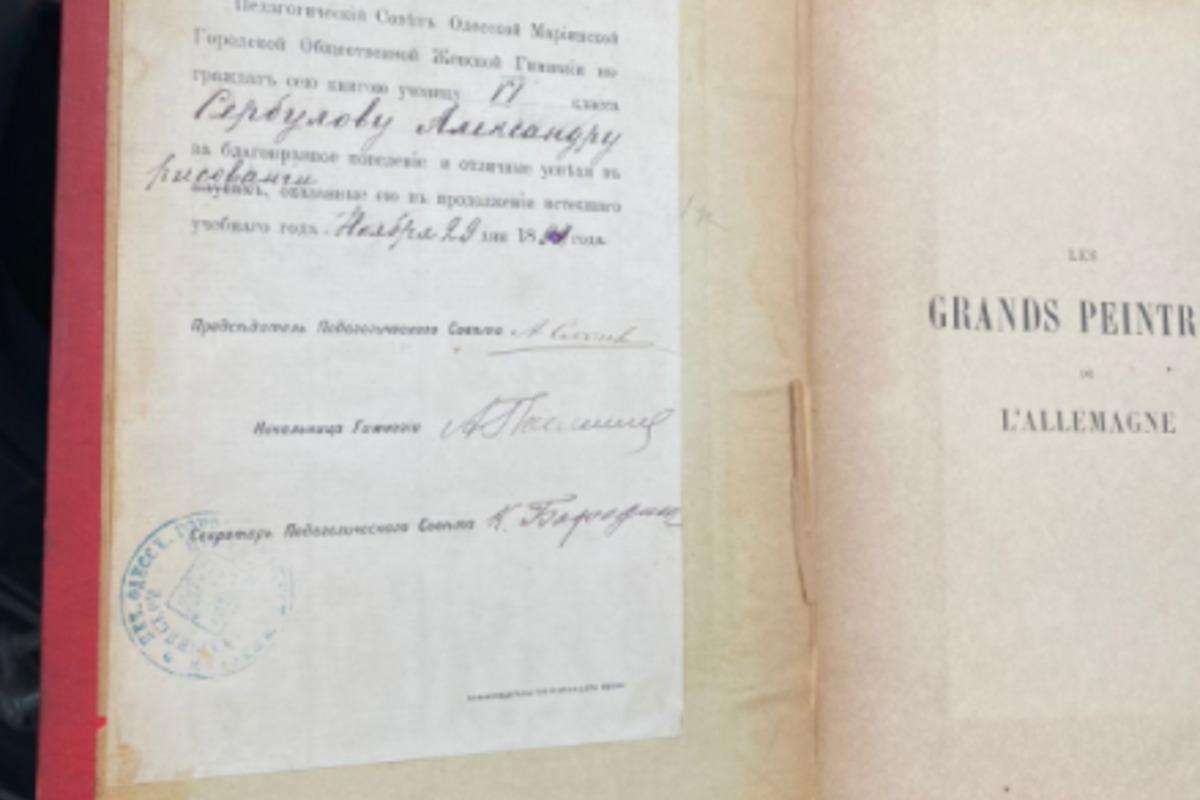 Педагогическій Совѣтъ Одесской Маріинской
Городской Общественной Женской Гимназіи на-
граждаетъ сею книгою ученицу VI класса
Сербулову Александру
за благонравное поведеніе и отличные успѣхи въ
рисованіи
наукахъ, оказанные ею въ продолженіе истекшаго
учебнаго года. Ноября 29 дня 18 года.
Предсѣдатель Педагогическаго Совѣта
Начальница Гимназіи
Секретарь Педагогическаго Совѣта К. Бородин
LES
GRANDS PEINTR
DE
L'ALLEMAGNE